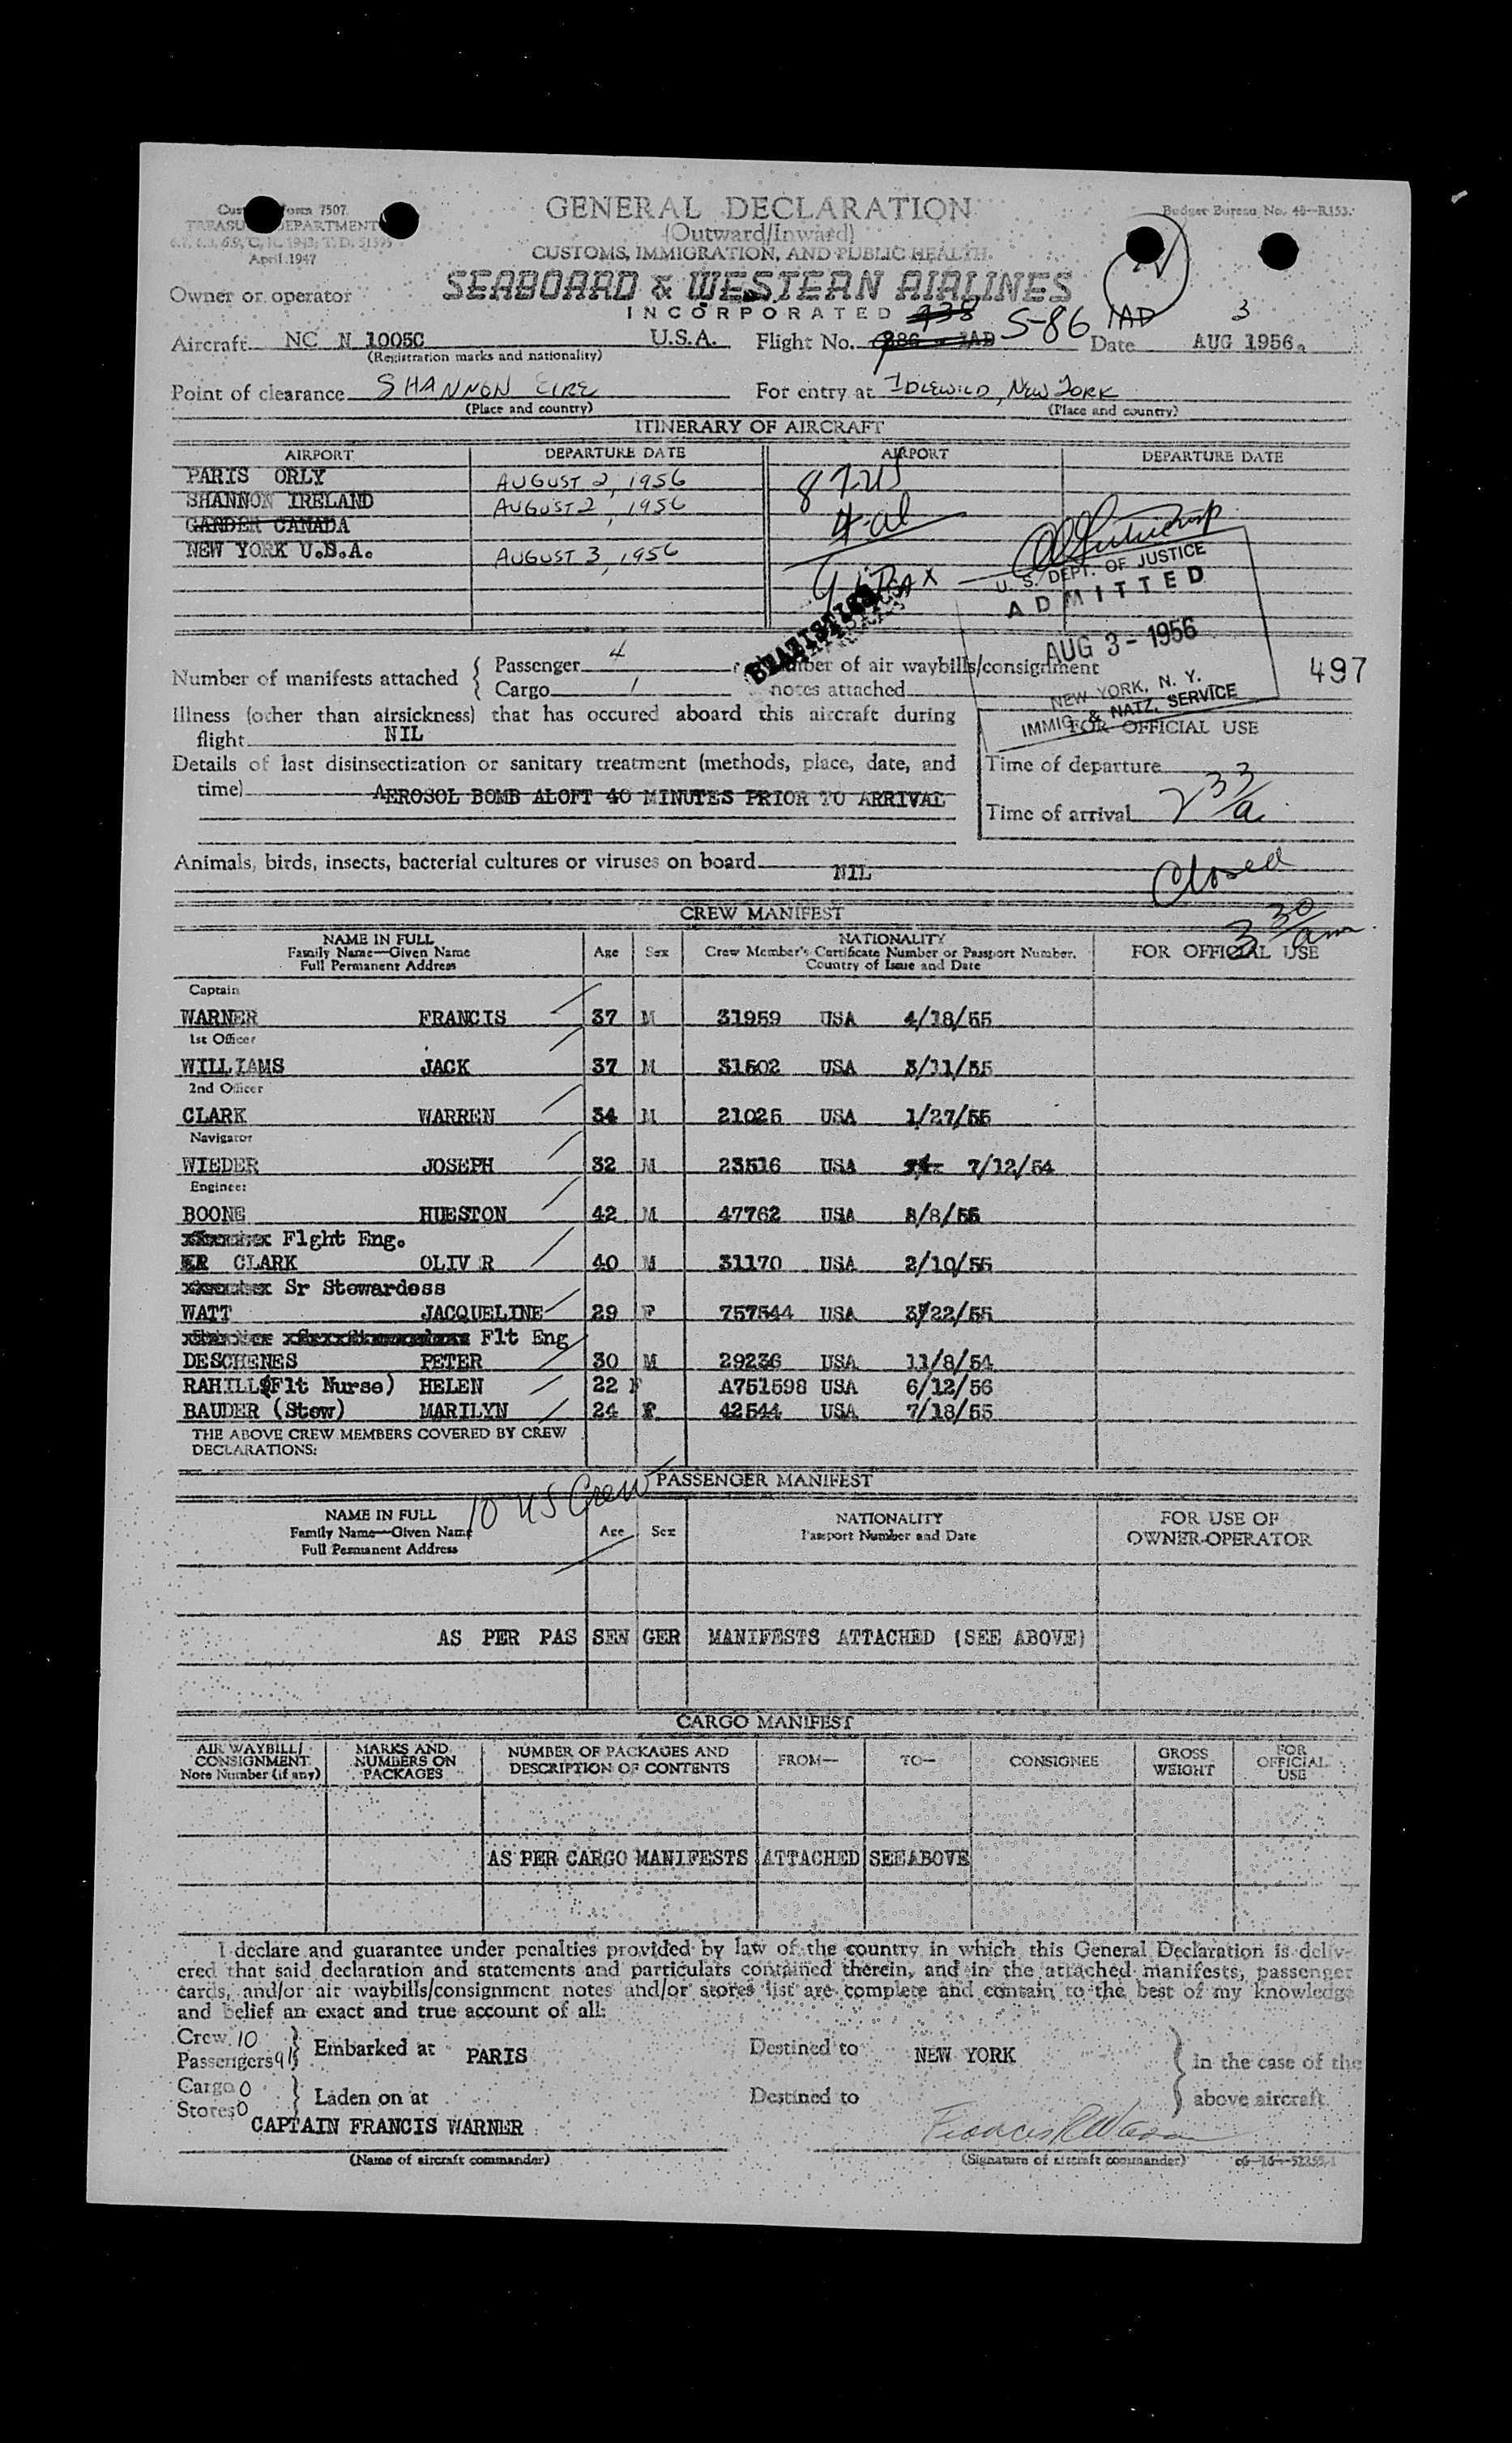 Form 7507
TREASURY DEPARTMENT
April 1947
GENERAL DECLARATION
(Outward/Inward)
CUSTOMS, IMMIGRATION, AND PUBLIC HEALTH
Budget Bureau No. 48-R153.
Owner or operator
SEABOARD & WESTERN AIRLINES
INCORPORATED
Aircraft NC N 1005C U.S.A. Flight No. S-86 IAD Date 3 AUG 1956.
(Registration marks and nationality)
Point of clearance SHANNON EIRE For entry at IDLEWILD, NEW YORK
(Place and country) (Place and country)
ITINERARY OF AIRCRAFT
AIRPORT DEPARTURE DATE AIRPORT DEPARTURE DATE
PARIS ORLY AUGUST 2, 1956 87 US
SHANNON IRELAND AUGUST 2, 1956 4 al
GANDER CANADA
NEW YORK U.S.A. AUGUST 3, 1956
U. S. DEPT. OF JUSTICE
ADMITTED
AUG 3 - 1956
NEW YORK, N. Y.
IMMIG. & NATZ. SERVICE
STATISTICS
497
Number of manifests attached { Passenger 4 Number of air waybills/consignment
Cargo 1 notes attached
Illness (other than airsickness) that has occured aboard this aircraft during
flight NIL
FOR OFFICIAL USE
Details of last disinsectization or sanitary treatment (methods, place, date, and
time) AEROSOL BOMB ALOFT 40 MINUTES PRIOR TO ARRIVAL
Time of departure
Time of arrival 2 33/a
Animals, birds, insects, bacterial cultures or viruses on board NIL
Closed
3 30/am.
CREW MANIFEST
NAME IN FULL
Family Name—Given Name
Full Permanent Address
Age Sex
NATIONALITY
Crew Member's Certificate Number or Passport Number.
Country of Issue and Date
FOR OFFICIAL USE
Captain
WARNER FRANCIS 37 M 31959 USA 4/18/55
1st Officer
WILLIAMS JACK 37 M 31502 USA 3/11/55
2nd Officer
CLARK WARREN 34 M 21025 USA 1/27/55
Navigator
WIEDER JOSEPH 32 M 23516 USA 7/12/54
Engineer
BOONE HUESTON 42 M 47762 USA 8/8/55
Flght Eng.
CLARK OLIV R 40 M 31170 USA 2/10/55
Sr Stewardess
WATT JACQUELINE 29 F 757544 USA 3/22/55
Flt Eng
DESCHENES PETER 30 M 29236 USA 11/8/54
RAHILL (Flt Nurse) HELEN 22 F A751598 USA 6/12/56
BAUDER (Stew) MARILYN 24 F 42544 USA 7/18/55
THE ABOVE CREW MEMBERS COVERED BY CREW
DECLARATIONS:
10 US Crew
PASSENGER MANIFEST
NAME IN FULL
Family Name—Given Name
Full Permanent Address
Age Sex
NATIONALITY
Passport Number and Date
FOR USE OF
OWNER-OPERATOR
AS PER PAS SEN GER MANIFESTS ATTACHED (SEE ABOVE)
CARGO MANIFEST
AIR WAYBILL/
CONSIGNMENT
Note Number (if any)
MARKS AND
NUMBERS ON
PACKAGES
NUMBER OF PACKAGES AND
DESCRIPTION OF CONTENTS
FROM— TO— CONSIGNEE
GROSS
WEIGHT
FOR
OFFICIAL
USE
AS PER CARGO MANIFESTS ATTACHED SEE ABOVE
I declare and guarantee under penalties provided by law of the country in which this General Declaration is deliv-
ered that said declaration and statements and particulars contained therein, and in the attached manifests, passenger
cards, and/or air waybills/consignment notes and/or stores list are complete and contain to the best of my knowledge
and belief an exact and true account of all:
Crew 10
Passengers 91 } Embarked at PARIS Destined to NEW YORK } in the case of the
Cargo 0
Stores 0 } Laden on at Destined to above aircraft
CAPTAIN FRANCIS WARNER
(Name of aircraft commander) (Signature of aircraft commander)